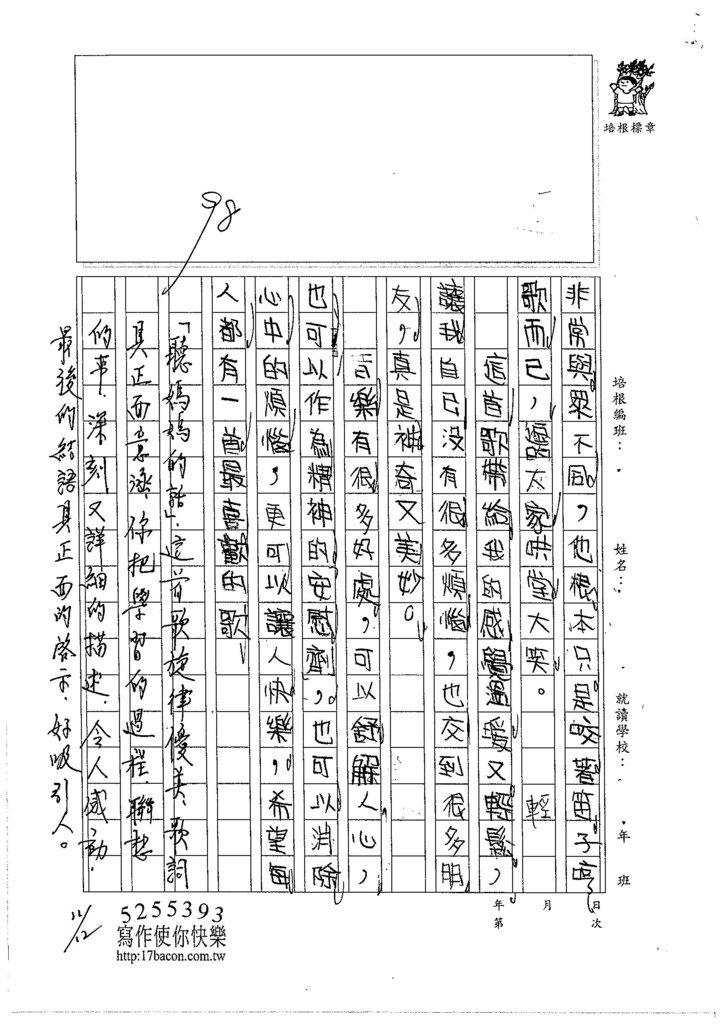 培根標章
培根編班：
姓名：
就讀學校：
年 班
日次
月
年第
98
非常與眾不同，他根本只是咬著笛子哼
歌而已，逗大家哄堂大笑。
輕
這首歌帶給我的感覺溫暖又輕鬆，
讓我自己沒有很多煩惱，也交到很多朋
友，真是神奇又美妙。
音樂有很多好處，可以舒解人心，
也可以作為精神的安慰劑，也可以消除
心中的煩惱，更可以讓人快樂，希望每
人都有一首最喜歡的歌
「聽媽媽的話」，這首歌旋律優美、歌詞
具正面意涵，你把學習的過程聯想
的事，深刻又詳細的描述，令人感動，
最後的結語具正面的啓示，好吸引人。
11/12
5255393
寫作使你快樂
http:17bacon.com.tw